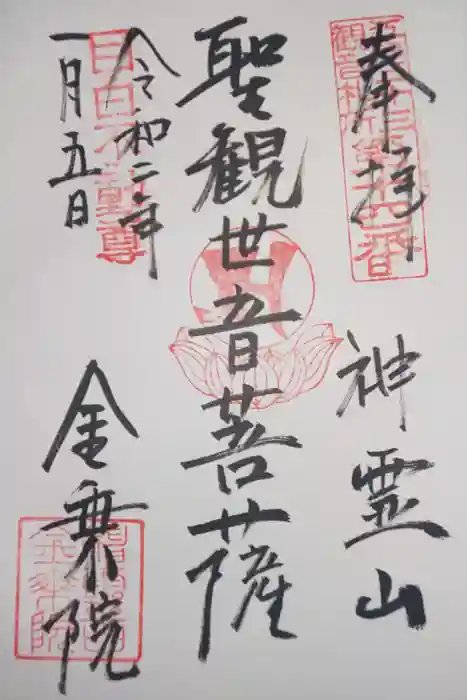 奉拝
神霊山
聖観世音菩薩
令和二年
一月五日
金乗院
目白不動尊